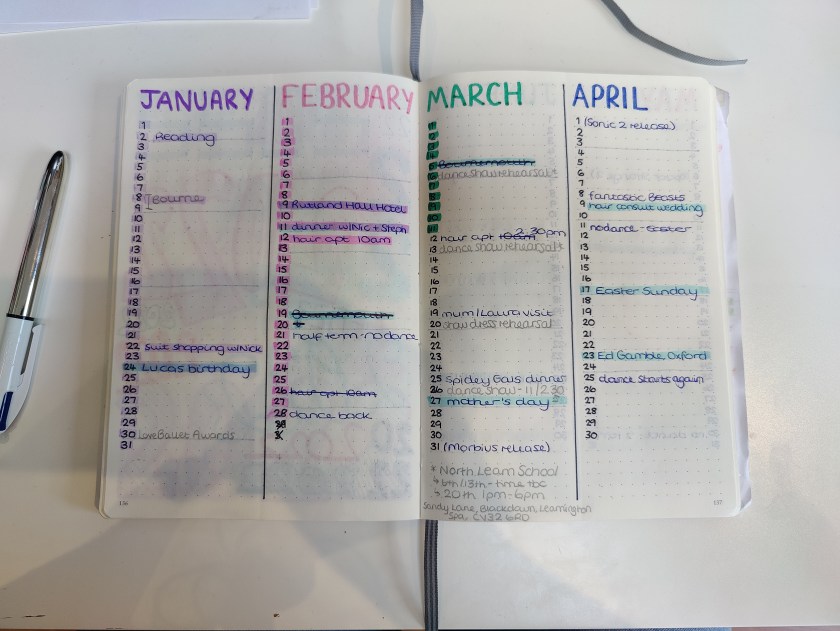 JANUARY
1
2 Reading
3
4
5
6
7
8 Bourne
9
10
11
12
13
14
15
16
17
18
19
20
21
22 suit shopping w/Nick
23
24 Lucas birthday
25
26
27
28
29
30 LoveBallet Awards
31
136
FEBRUARY
1
2
3
4
5
6
7
8
9 Rutland Hall Hotel
10
11 dinner w/Nic + Steph
12 hair apt 10am
13
14
15
16
17
18
19 Bournemouth
20
21 half term - no dance
22
23
24
25
26 hair apt 10am
27
28 dance back
MARCH
5 Bournemouth
6 dance show rehearsal*
2:30pm
12 hair apt 10am
13 dance show rehearsal*
14
15
16
17
18
19 mum/Laura visit
20 show dress rehearsal
21
22
23
24
25 Spidey Gals dinner
26 dance show - 11/2:30
27 mother's day
28
29
30
31 (Morbius release)
* North Leam School
↳ 6th/13th - time tbc
↳ 20th 1pm-6pm
Sandy Lane, Blackdown, Leamington
Spa, CV32 6RD
APRIL
1 (Sonic 2 release)
2
3
4
5
6
7
8 fantastic Beasts
9 hair consult wedding
10
11 no dance - easter
12
13
14
15
16
17 Easter Sunday
18
19
20
21
22
23 Ed Gamble, Oxford
24
25 dance starts again
26
27
28
29
30
137